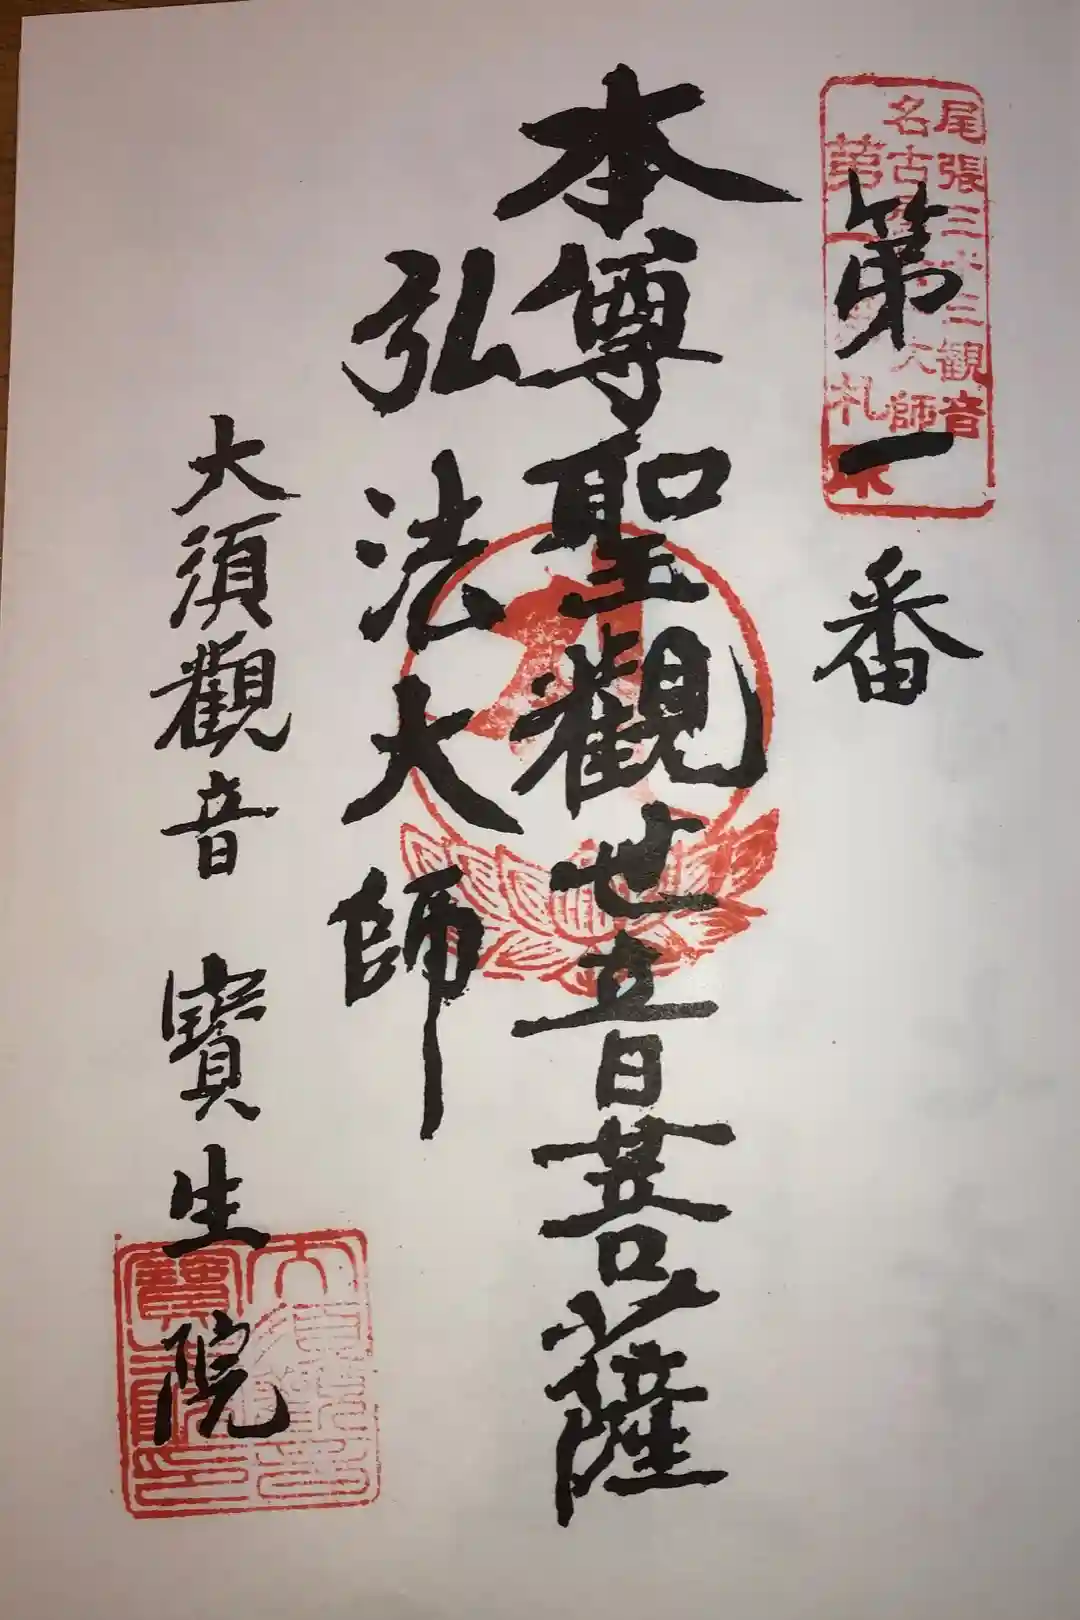 第一番
尾張三十三觀音
名古屋 大師
第一 札所
本尊聖觀世音菩薩
弘法大師
大須觀音 寶生院